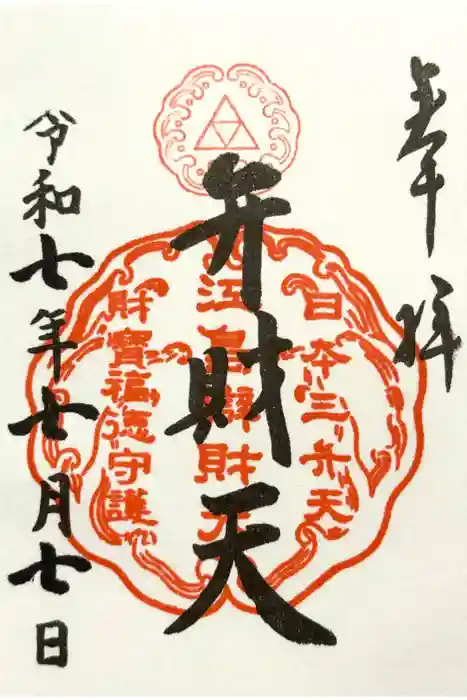 奉拝
弁財天
日本三弁天
江島辨財天
財寶福徳守護
令和七年七月七日